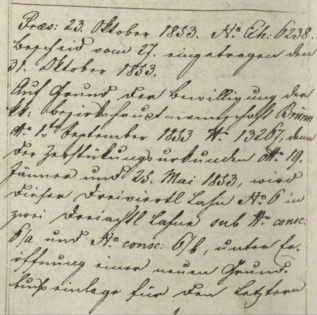 Præs: 23. Oktober 1853. Nº Exh: 6238.
Bescheid vom 27. eingetragen den
31. Oktober 1853.
Auf Grund der Bewilligung der
kk: Bezirkshauptmannschaft Brünn
1. September 1853 Nº 13267, dann
der Zerstückungsurkunden 19.
Jänner und 25. Mai 1853, wird
dieser Dreiviertl Lahn Nº 6 in
zwei Dreiachtl Lahne sub Nº consc:
6/a und Nº consc: 6/b, unter Er-
öffnung einer neuen Grund-
buchseinlage für den Letztern